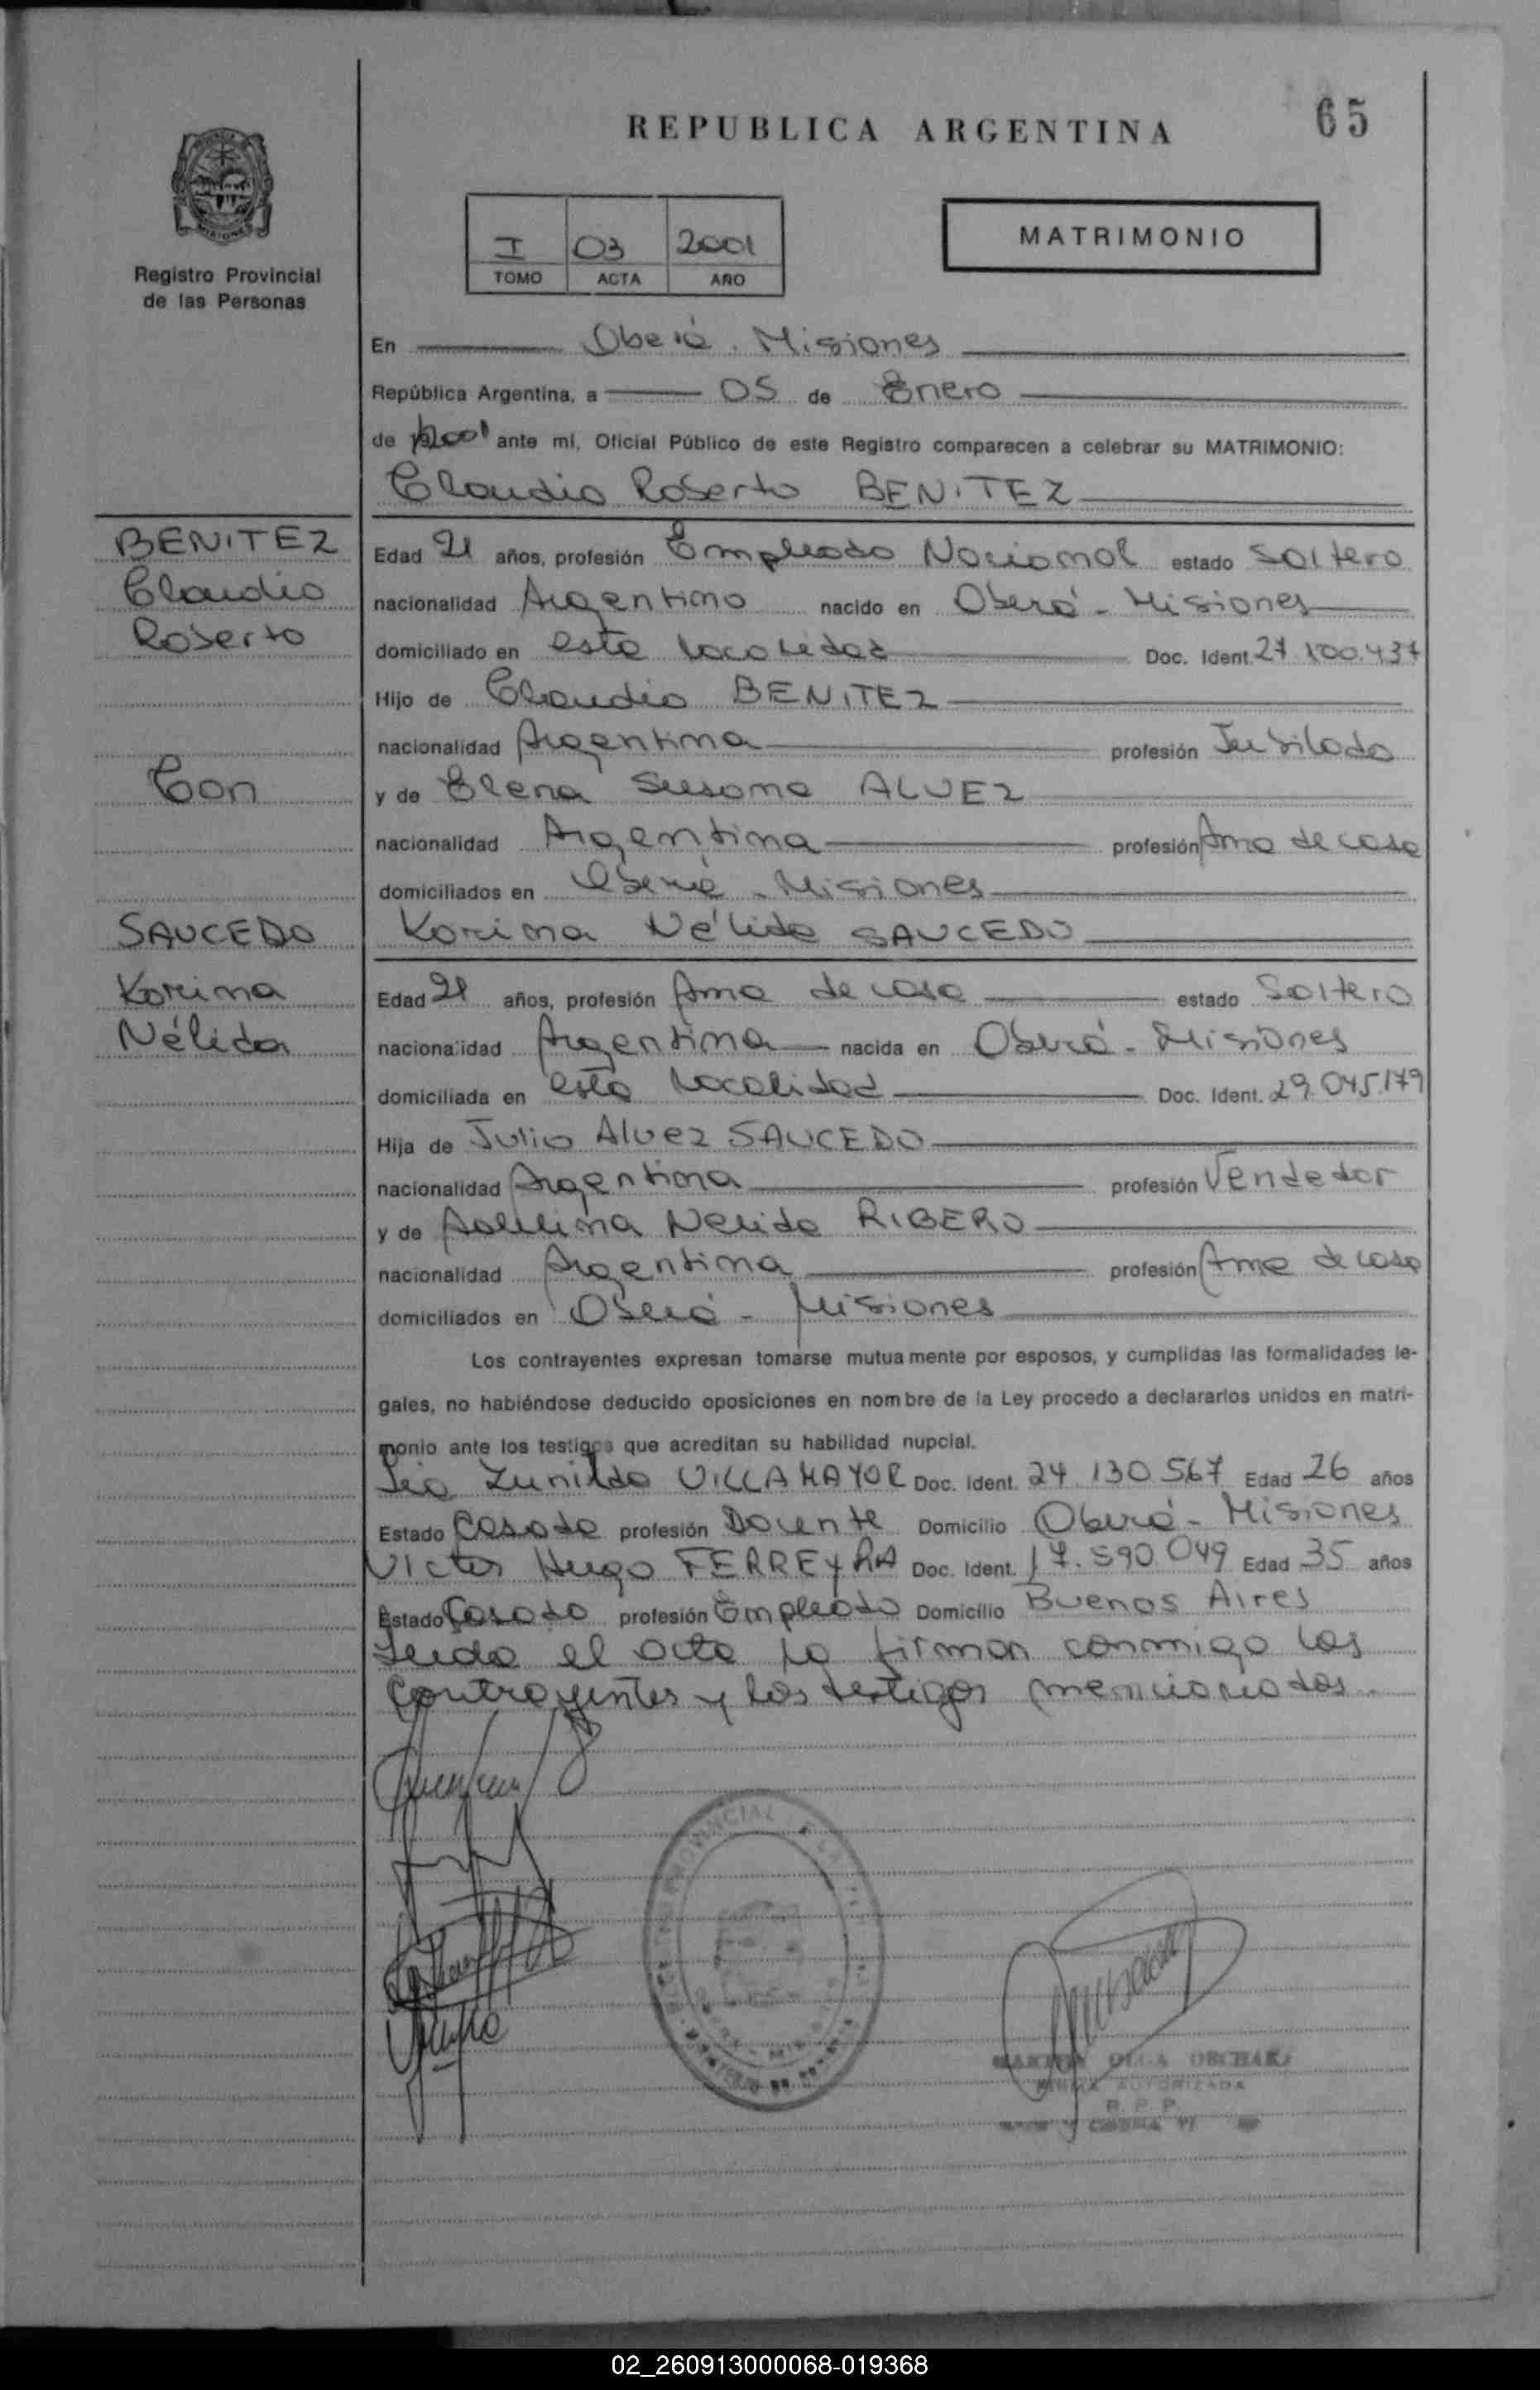 REPUBLICA ARGENTINA
65
Registro Provincial
de las Personas
I 03 2001
TOMO ACTA AÑO
MATRIMONIO
En Oberá. Misiones
República Argentina, a 05 de Enero
de 2001 ante mí, Oficial Público de este Registro comparecen a celebrar su MATRIMONIO:
Claudio Roberto BENITEZ
BENITEZ
Claudio
Roberto
Con
SAUCEDO
Karina
Nélida
Edad 21 años, profesión Empleado Nacional estado Soltero
nacionalidad Argentino nacido en Oberá - Misiones
domiciliado en esta localidad Doc. Ident. 27.100.437
Hijo de Claudio BENITEZ
nacionalidad Argentina profesión Jubilado
y de Elena Susana ALVEZ
nacionalidad Argentina profesión Ama de casa
domiciliados en Oberá - Misiones
Karina Nélida SAUCEDO
Edad 21 años, profesión Ama de casa estado Soltera
nacionalidad Argentina nacida en Oberá - Misiones
domiciliada en esta localidad Doc. Ident. 29.045.179
Hija de Julio Alvez SAUCEDO
nacionalidad Argentina profesión Vendedor
y de Nelida RIBERO
nacionalidad Argentina profesión Ama de casa
domiciliados en Oberá - Misiones
Los contrayentes expresan tomarse mutuamente por esposos, y cumplidas las formalidades le-
gales, no habiéndose deducido oposiciones en nombre de la Ley procedo a declararlos unidos en matri-
monio ante los testigos que acreditan su habilidad nupcial.
Zunilda VILLAMAYOR Doc. Ident. 24.130.567 Edad 26 años
Estado Casada profesión Docente Domicilio Oberá - Misiones
Victor Hugo FERREYRA Doc. Ident. 17.590.049 Edad 35 años
Estado Casado profesión Empleado Domicilio Buenos Aires
Leida el acta la firman conmigo los
contrayentes y los testigos mencionados.
OLGA
FIRMA AUTORIZADA
R. P. P.
02_260913000068-019368